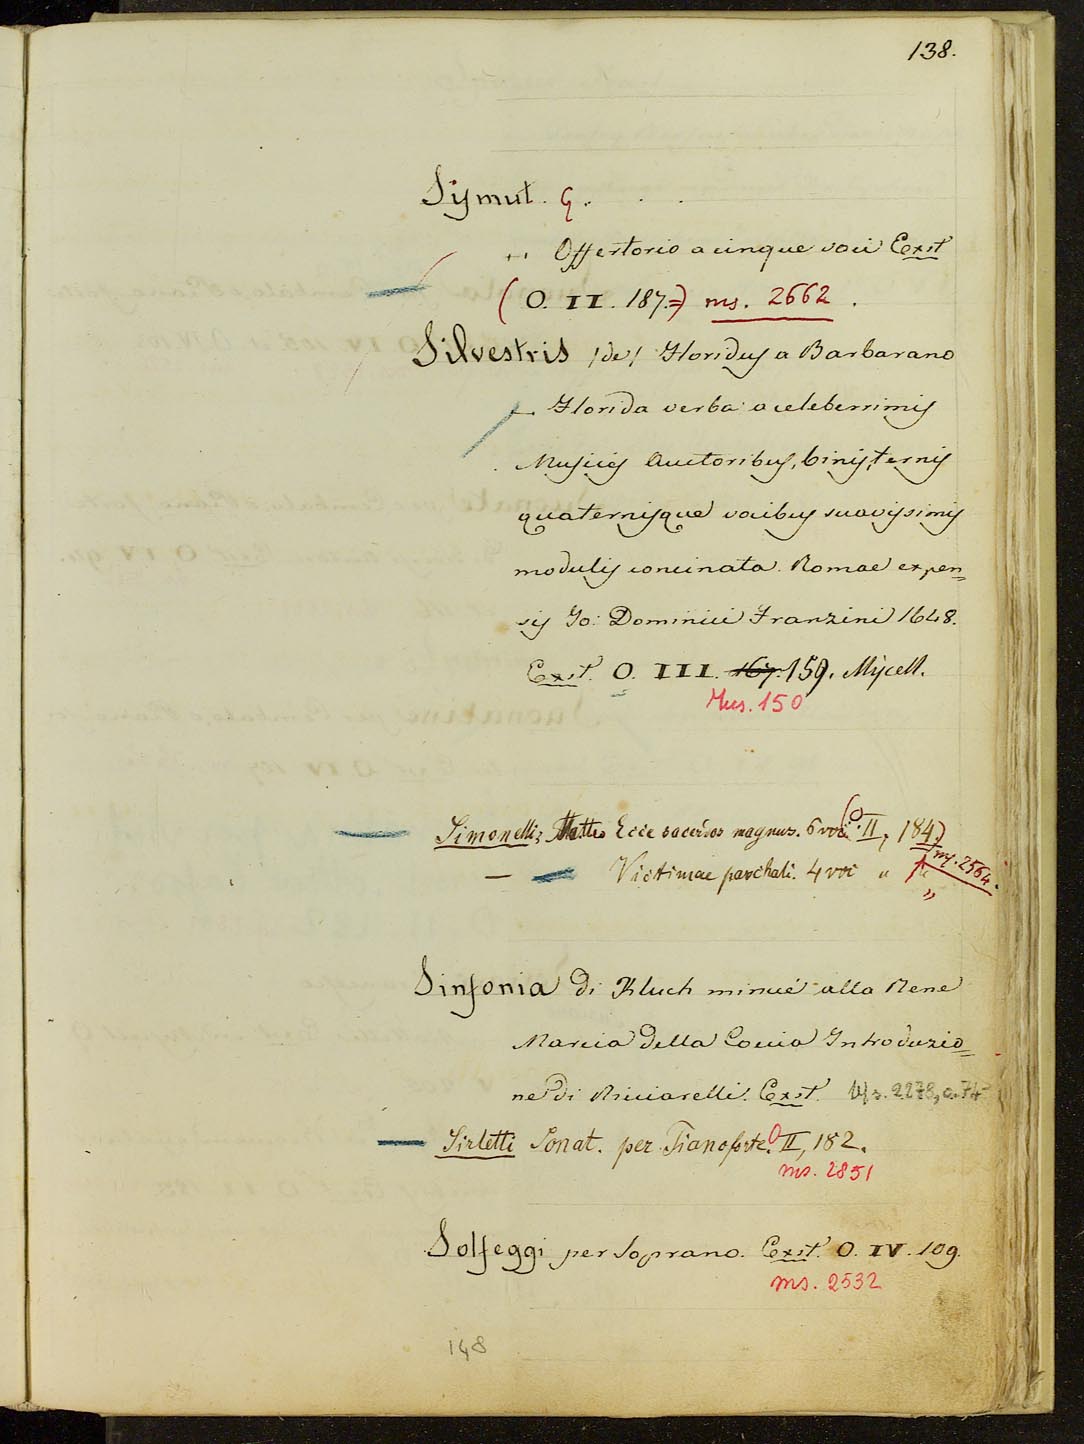 138.
Sijmut. G.
Offertorio a cinque voci Exst
(O. II. 187.=) ms. 2662.
Silvestris /de/ Floridus a Barbarano
Florida verba a celeberrimis
Musicis Auctoribus, binis, ternis
quaternisque vocibus suavissimis
modulis concinata. Romae expen=
sis Jo: Dominici Franzini 1648.
Exst. O. III. 167. 159. Miscell.
Mus. 150
Simonelli, Matteo Ecce sacerdos magnus. 6 voci. (O. II, 184)
ms. 2564.
— Victimae paschali. 4 voci „ „
„
Sinfonia di Kluch minué alla Rene
Marcia della Coccia Introduzio=
ne di Ricciarelli. Exst. Ms. 2278, c. 74
Sirletti Sonat. per Pianoforte. O II, 182.
ms. 2851
Solfeggi per Soprano. Exst. O. IV. 109.
ms. 2532
148